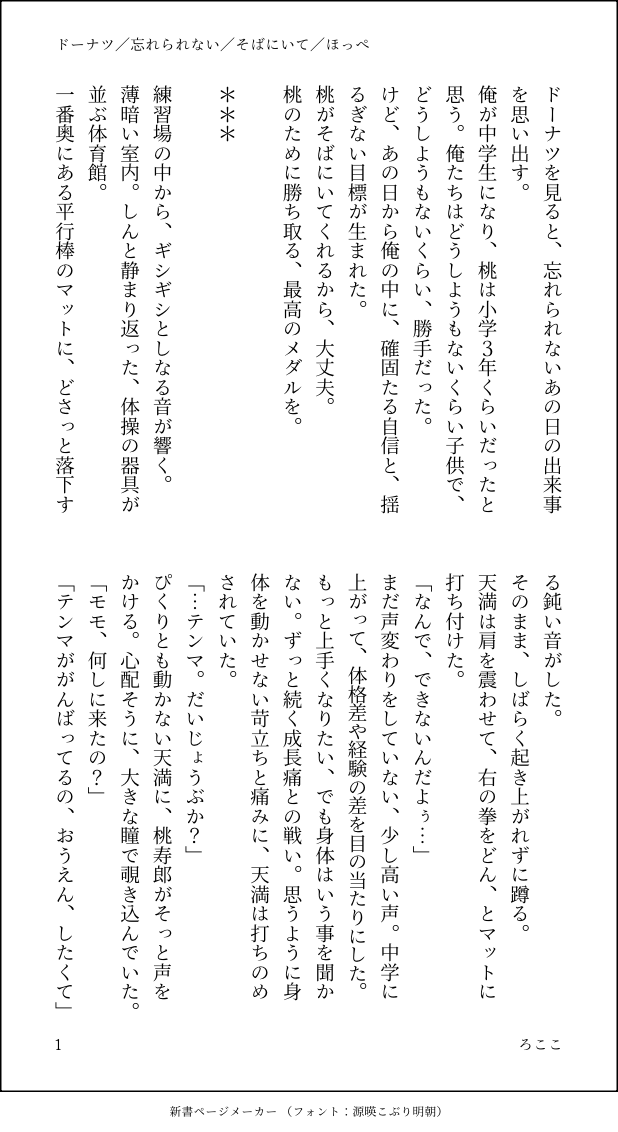 ドーナツ／忘れられない／そばにいて／ほっぺ
ドーナツを見ると、忘れられないあの日の出来事
を思い出す。
俺が中学生になり、桃は小学３年くらいだったと
思う。俺たちはどうしようもないくらい子供で、
どうしようもないくらい、勝手だった。
けど、あの日から俺の中に、確固たる自信と、揺
るぎない目標が生まれた。
桃がそばにいてくれるから、大丈夫。
桃のために勝ち取る、最高のメダルを。
＊＊＊
練習場の中から、ギシギシとしなる音が響く。
薄暗い室内。しんと静まり返った、体操の器具が
並ぶ体育館。
一番奥にある平行棒のマットに、どさっと落下す
る鈍い音がした。
そのまま、しばらく起き上がれずに蹲る。
天満は肩を震わせて、右の拳をどん、とマットに
打ち付けた。
「なんで、できないんだよぅ…」
まだ声変わりをしていない、少し高い声。中学に
上がって、体格差や経験の差を目の当たりにした。
もっと上手くなりたい、でも身体はいう事を聞か
ない。ずっと続く成長痛との戦い。思うように身
体を動かせない苛立ちと痛みに、天満は打ちのめ
されていた。
「…テンマ。だいじょうぶか？」
ぴくりとも動かない天満に、桃寿郎がそっと声を
かける。心配そうに、大きな瞳で覗き込んでいた。
「モモ、何しに来たの？」
「テンマががんばってるの、おうえん、したくて」
1
ろここ
新書ページメーカー（フォント：源暎こぶり明朝）